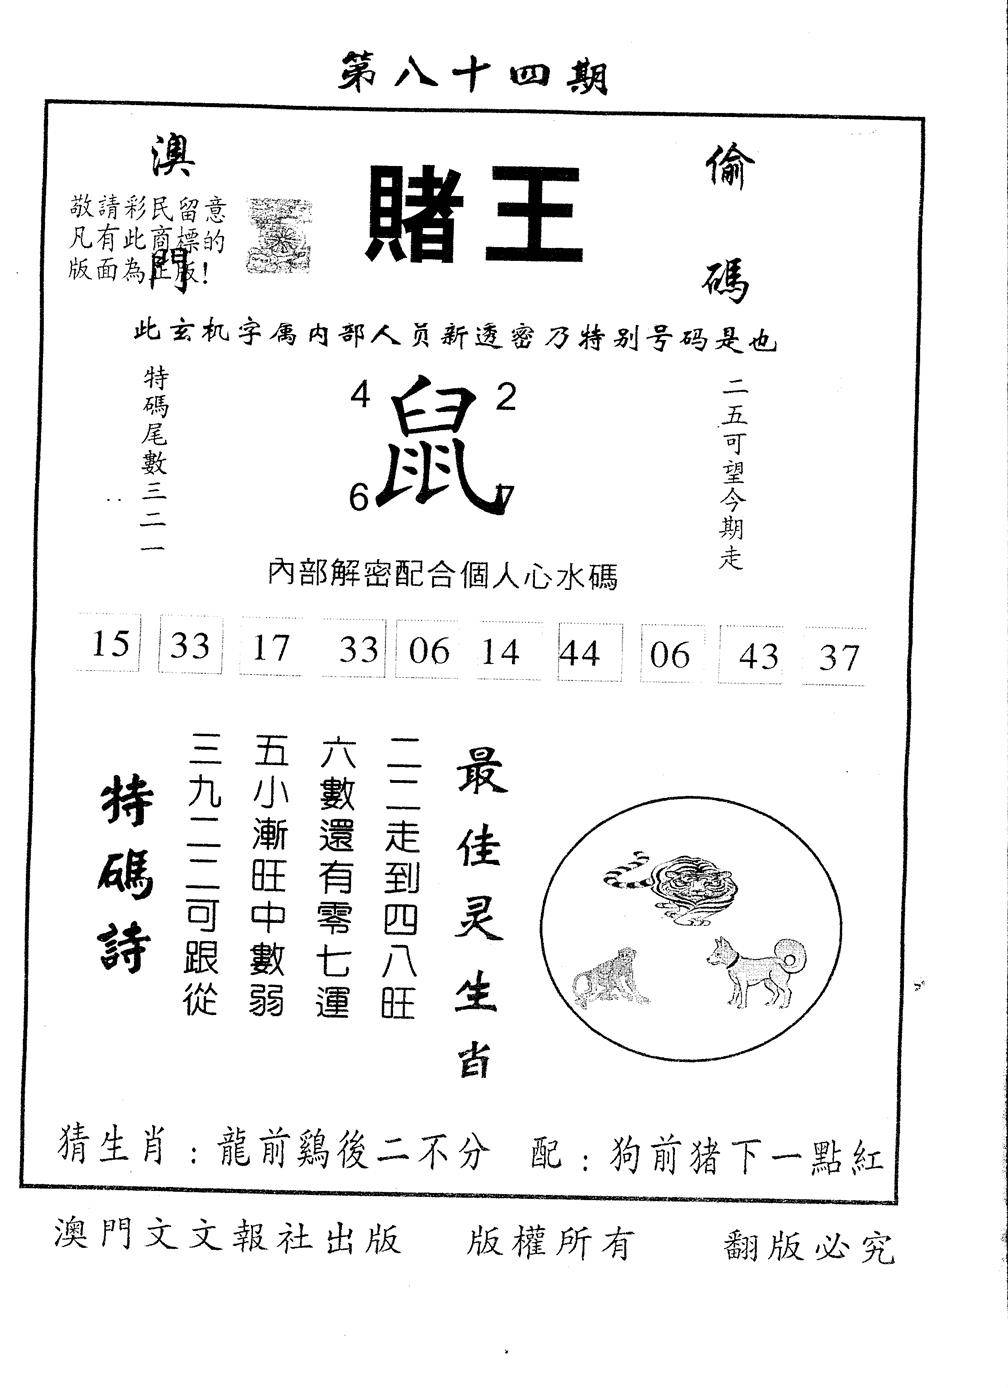 第八十四期
澳門
賭王
偷碼
敬請彩民留意
凡有此商標的
版面為正版!
此玄机字属内部人员新透密乃特别号码是也
特碼尾數三二一
4 2
鼠
6 7
二五可望今期走
內部解密配合個人心水碼
15 33 17 33 06 14 44 06 43 37
最佳灵生肖
二二走到四八旺
六數還有零七運
五小漸旺中數弱
三九二二可跟從
特碼詩
猜生肖:龍前鷄後二不分 配:狗前猪下一點紅
澳門文文報社出版 版權所有 翻版必究